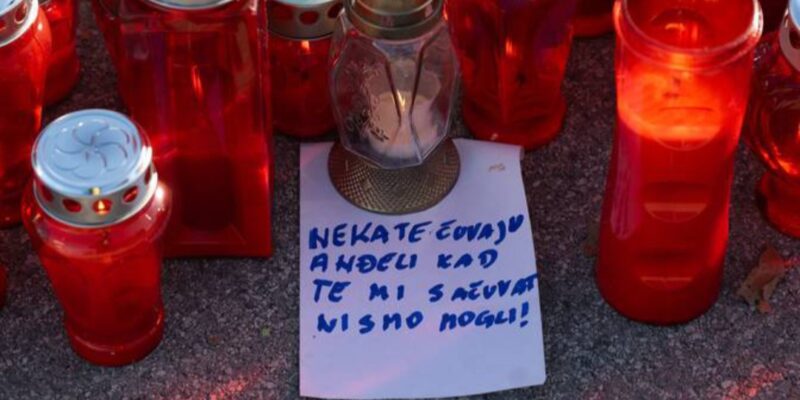 NEKA TE ČUVAJU
ANĐELI KAD
TE MI SAČUVAT
NISMO MOGLI!